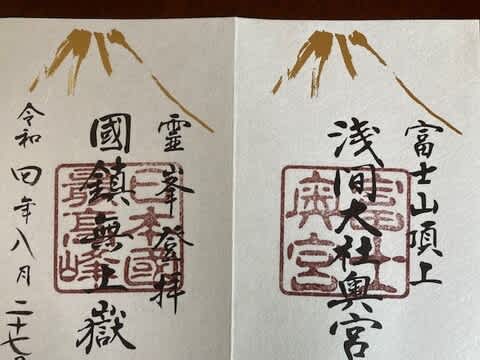 富士山頂上
浅間大社奥宮
富士
奥宮
霊峯登拝
國鎮無上嶽
日本國
最高峰
令和四年八月二十七